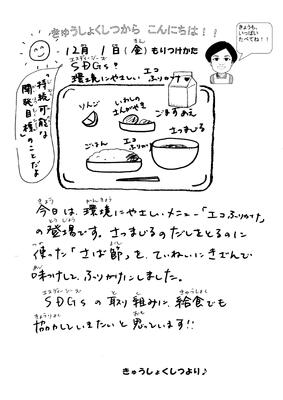 きゅうしょくしつから こんにちは！！
きょうも、
いっぱい
たべてね！！
12月 1日(金)もりつけかた
エスディージーズ
SDGs？
環境にやさしい エコふりかけ
「持続可能な
開発目標」
のことだよ
りんご
いわしの
さんがやき
ごまずあえ
ごはん
エコ
ふりかけ
さつまじる
今日は、環境にやさしいメニュー「エコふりかけ」
の登場です。さつまじるのだしをとるのに
使った「さば節」を、ていねいにきざんで
味つけして、ふりかけにしました。
エスディージーズ
SDGsの取り組みに、給食でも
協力していきたいと思っています!!
きゅうしょくしつより♪